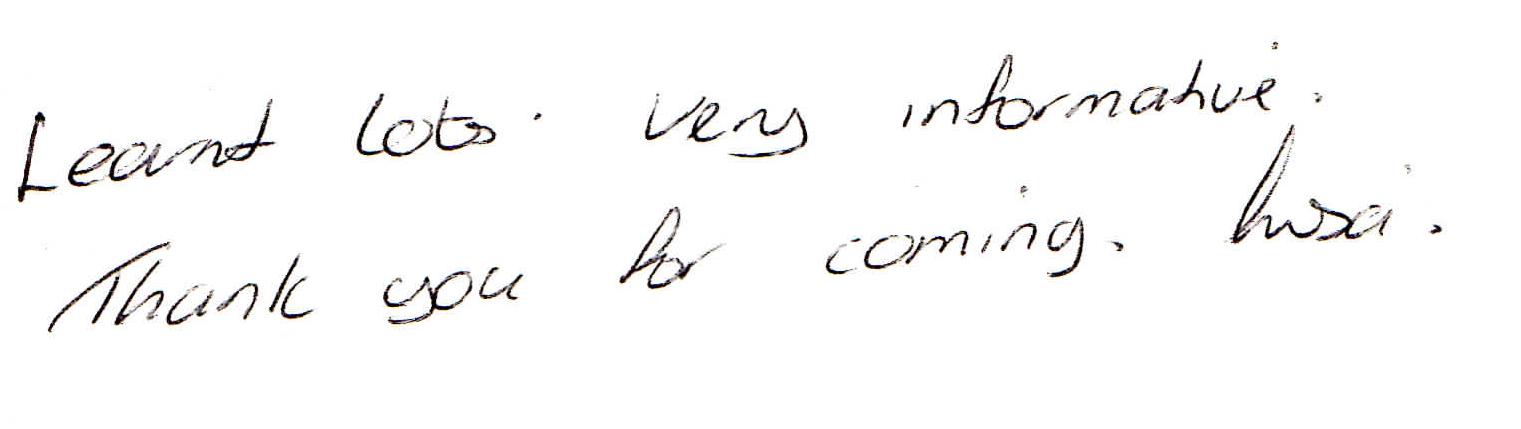 Learnt lots. Very informative.
Thank you for coming.